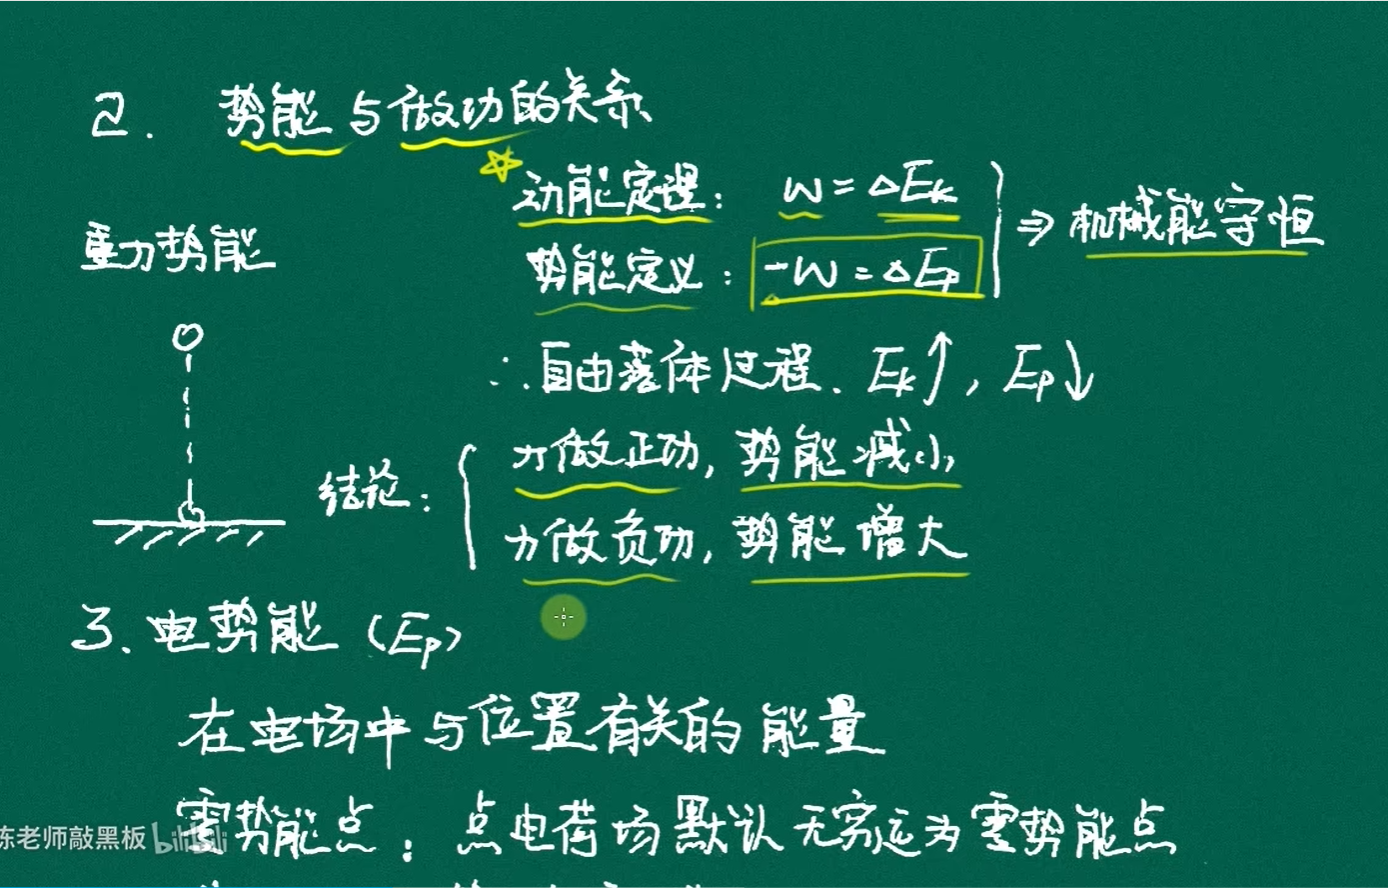 2. 势能与做功的关系
动能定理: W = ΔEk
重力势能
势能定义: -W = ΔEp
⇒ 机械能守恒
∴ 自由落体过程. Ek↑, Ep↓
结论:
力做正功, 势能减小
力做负功, 势能增大
3. 电势能 (Ep)
在电场中与位置有关的能量
零势能点: 点电荷场默认无穷远为零势能点
陈老师敲黑板 bilibili